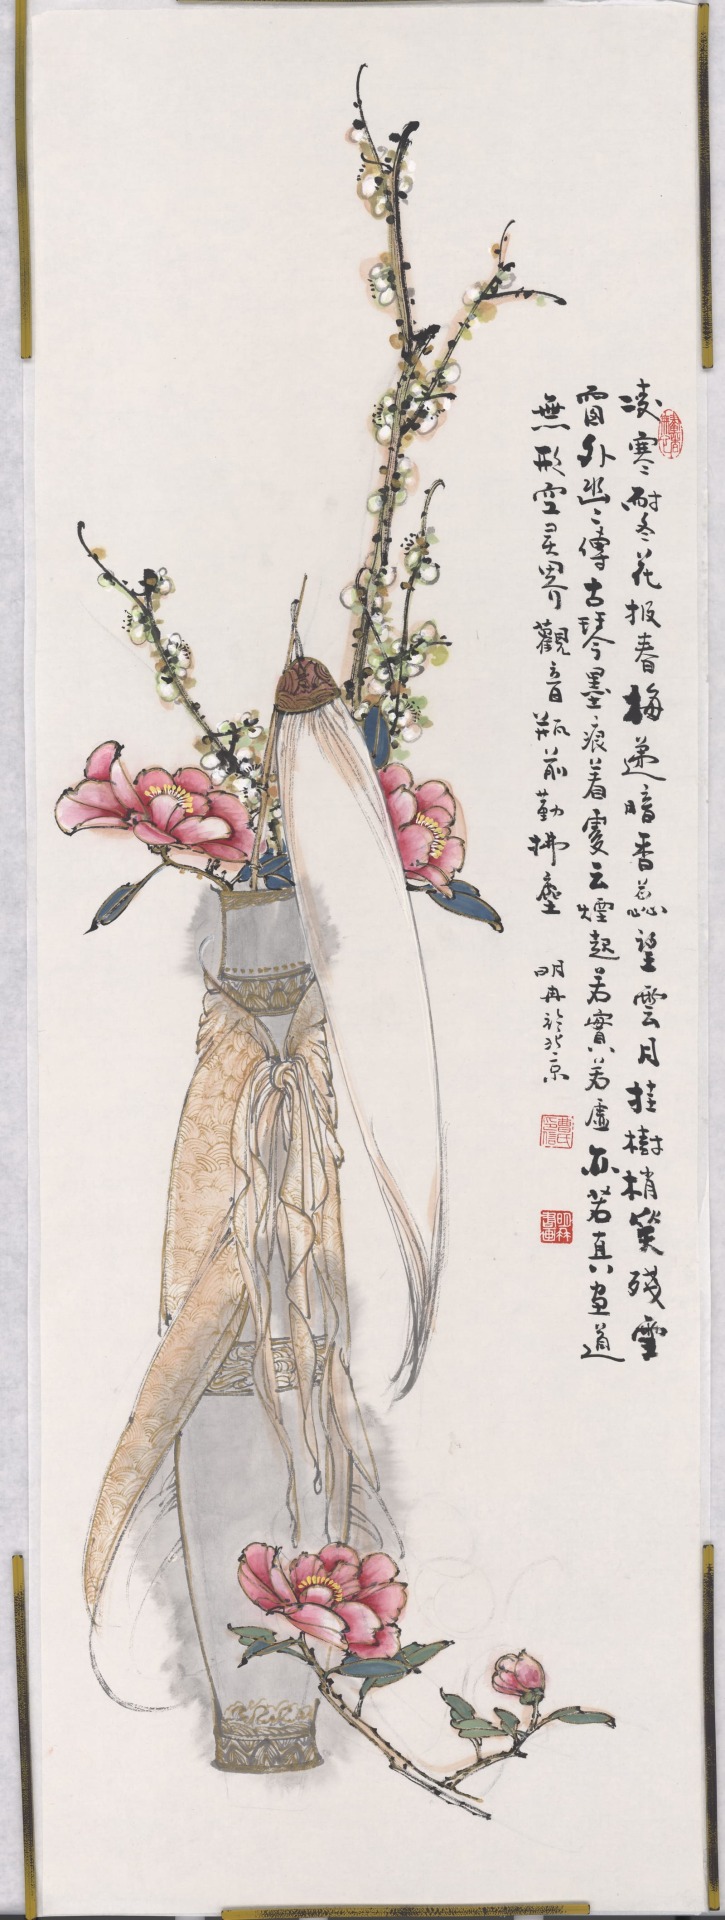 凌寒耐冬花报春梅递暗香蕊望雲月挂樹梢笑残雪
窗外幽幽傳古琴墨痕着處云煙起若實若虚亦若真画道
無形空灵界觀音瓶前勤拂塵
明冉於北京